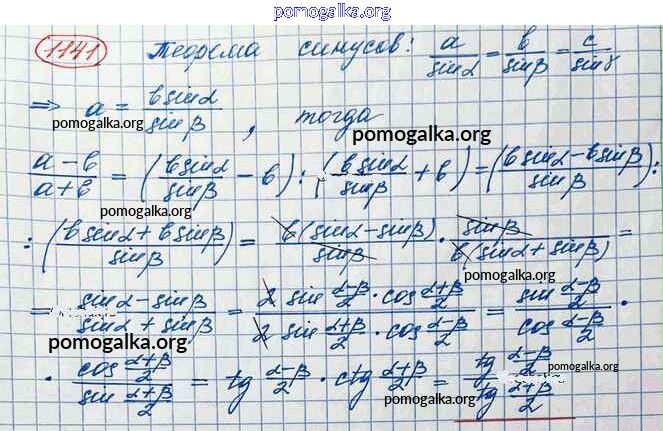 pomogalka.org
1141 Теорема синусов: a/sinα = b/sinβ = c/sinγ
⇒ a = b sinα / sinβ, тогда
pomogalka.org
pomogalka.org
(a-b)/(a+b) = (b sinα/sinβ - b) : (b sinα/sinβ + b) = ((b sinα - b sinβ)/sinβ) :
pomogalka.org
: ((b sinα + b sinβ)/sinβ) = b(sinα - sinβ)/sinβ · sinβ/(b(sinα + sinβ)) =
pomogalka.org
= (sinα - sinβ)/(sinα + sinβ) = (2 sin (α-β)/2 · cos (α+β)/2)/(2 sin (α+β)/2 · cos (α-β)/2) = (sin (α-β)/2)/(cos (α-β)/2) ·
pomogalka.org
· (cos (α+β)/2)/(sin (α+β)/2) = tg (α-β)/2 · ctg (α+β)/2 = (tg (α-β)/2)/(tg (α+β)/2)
pomogalka.org
pomogalka.org